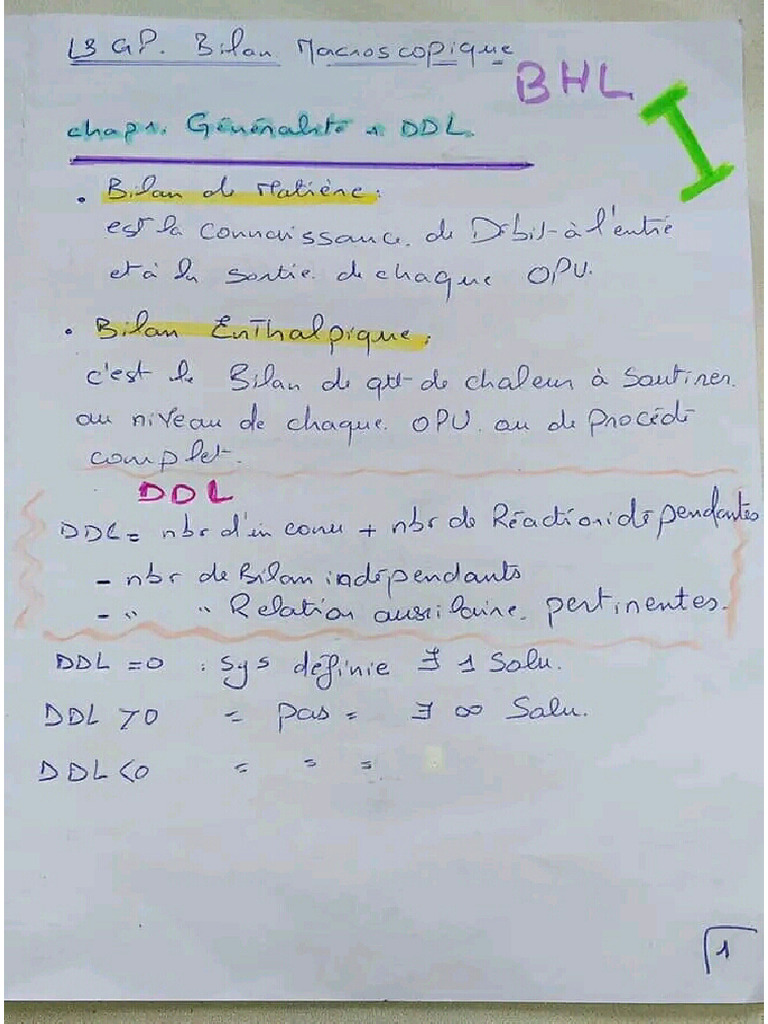 L3 GP. Bilan Macroscopique
BHL
I
chap1. Généralité 1 DDL.
• Bilan de Matière:
est la connaissance de Débit à l'entré
et à la sortie de chaque OPU.
• Bilan EnThalpique:
c'est le Bilan de qtt de chaleur à Soutirer
au niveau de chaque OPU ou de procédé
complet.
DDL
DDL = nbr d'in conu + nbr de Réaction idépendantes
- nbr de Bilan indépendants
- " " Relation auxilaire pertinentes.
DDL = 0 : sys définie ∃ 1 Solu.
DDL > 0 = pas = ∃ ∞ Solu.
DDL < 0 = = =
1